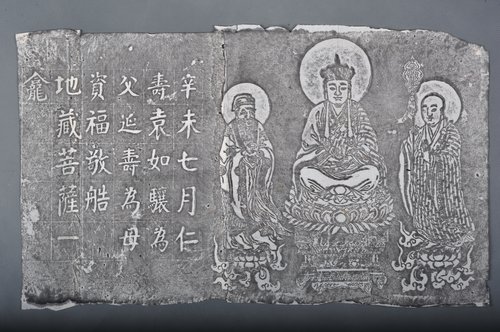 辛未七月仁
壽袁如驤為
父延壽為母
資福敬皓
地藏菩薩一
龕